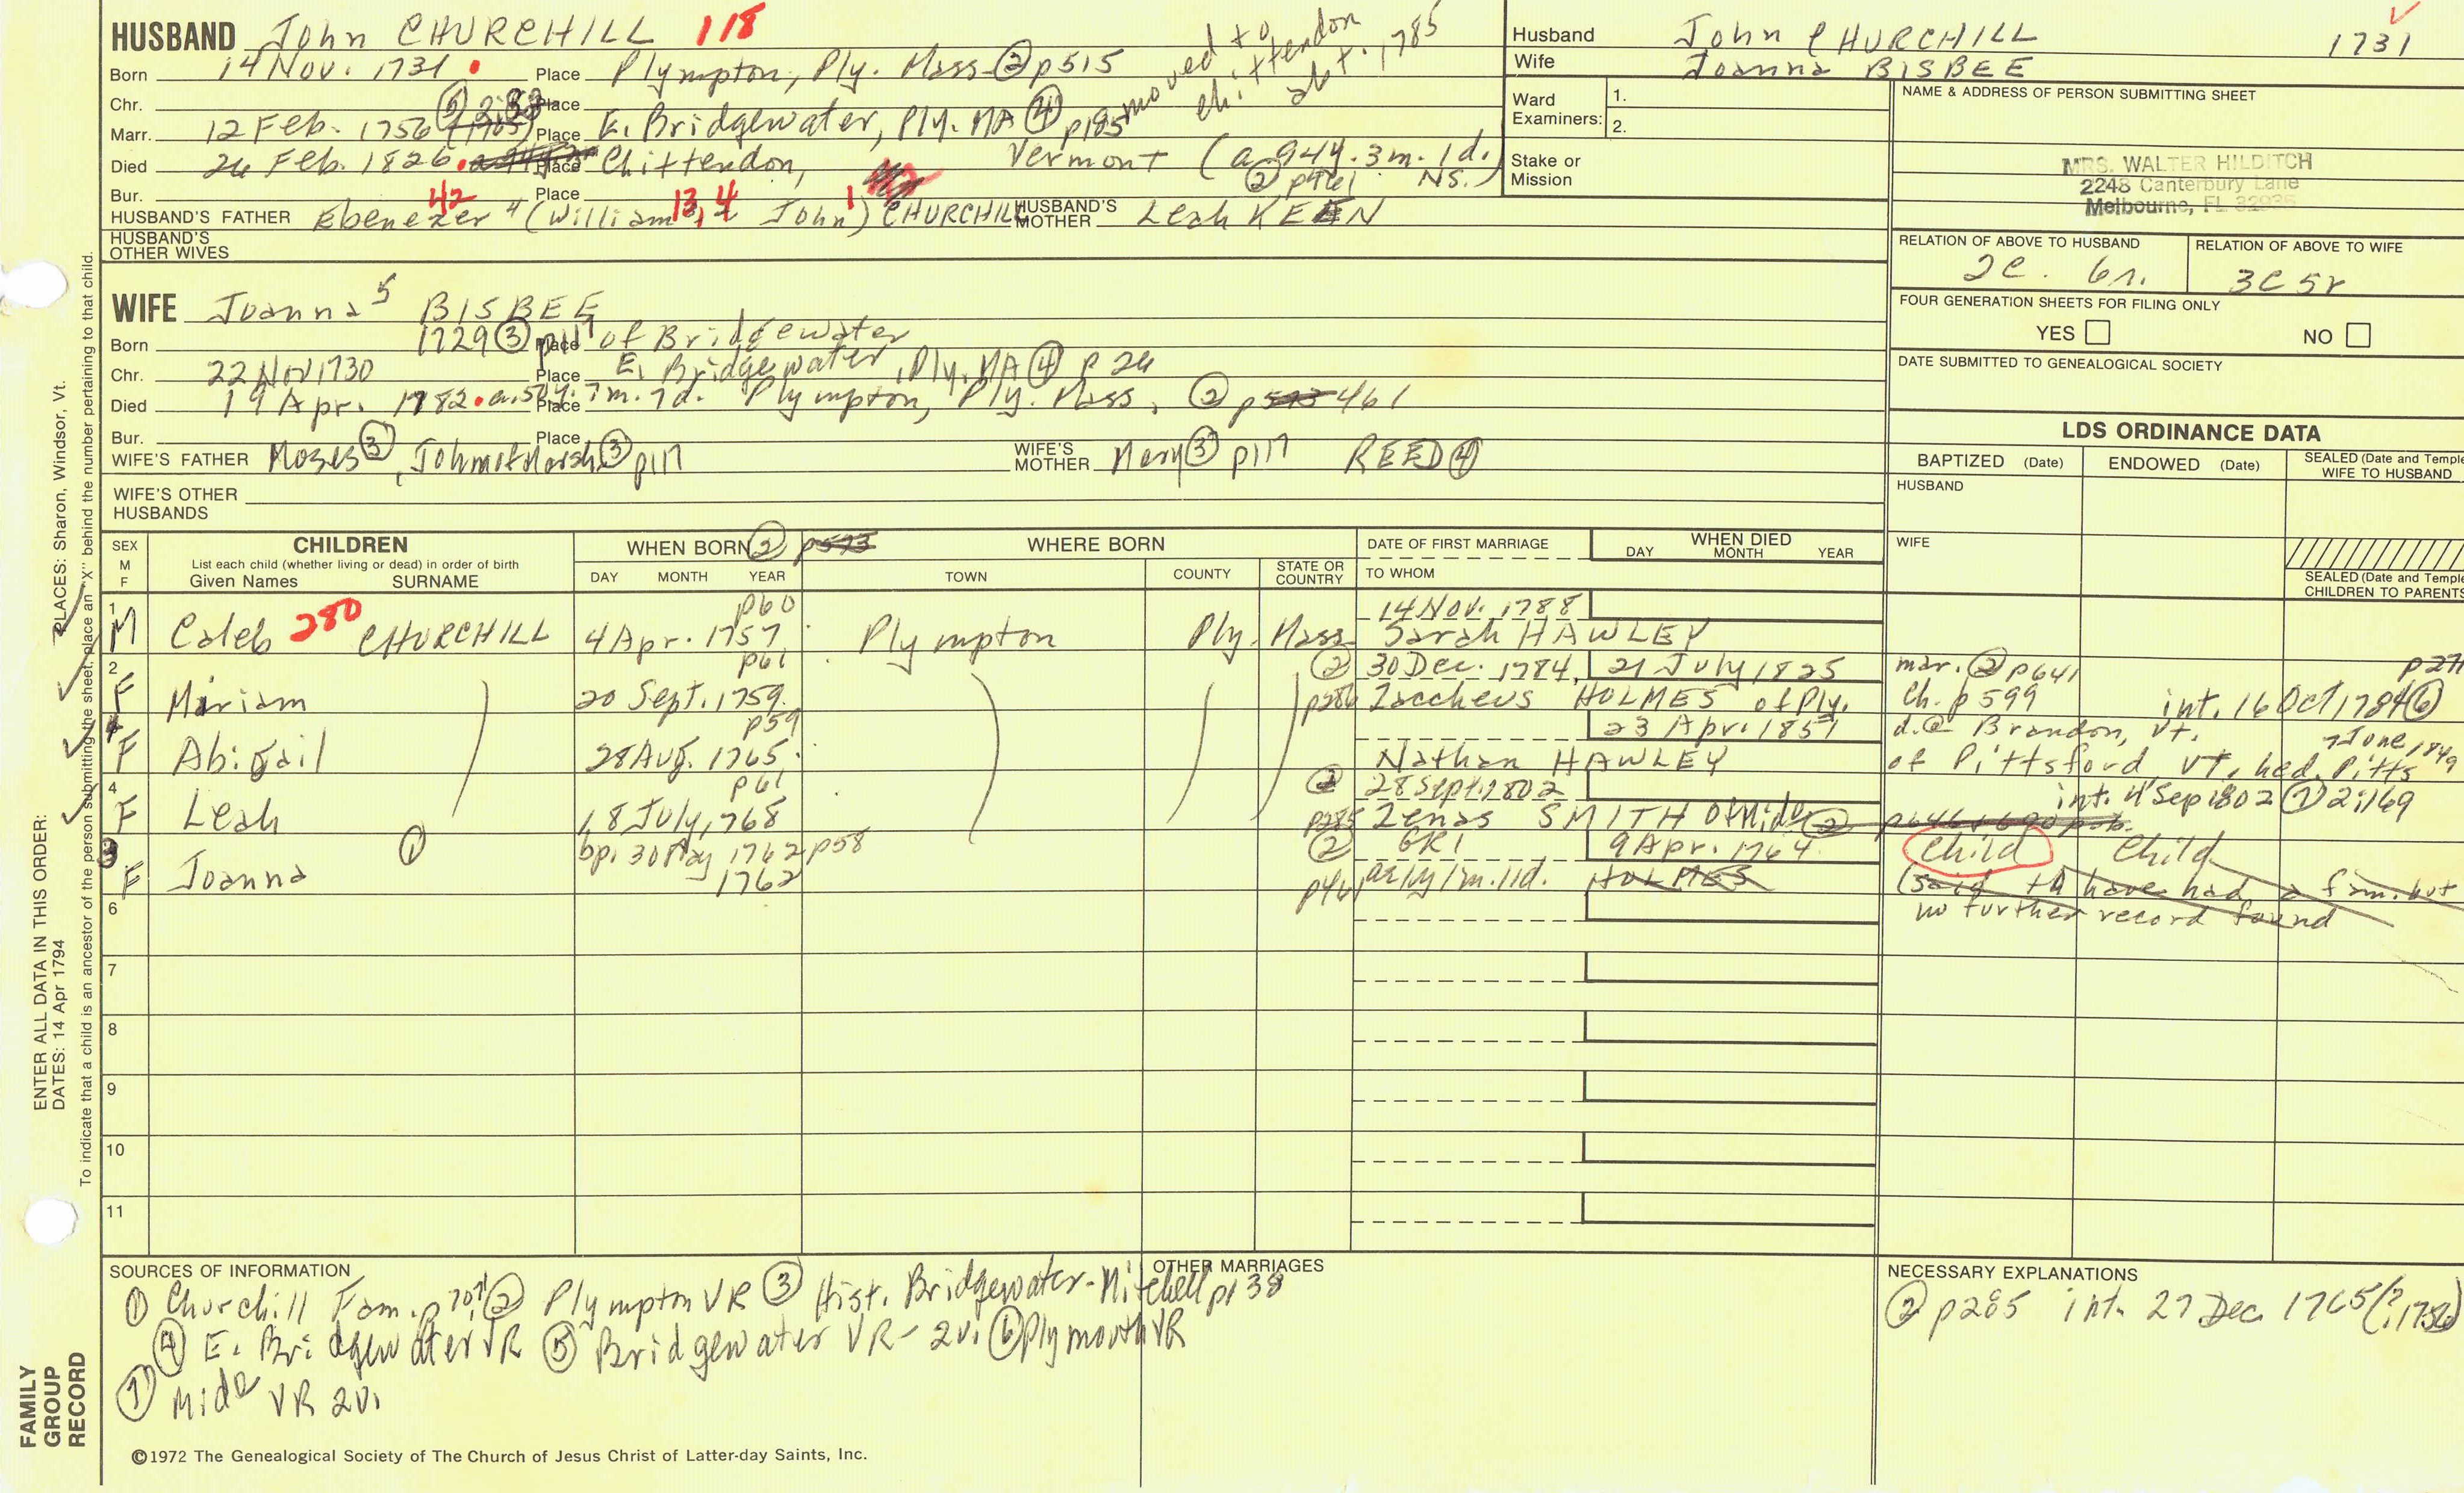 HUSBAND John CHURCHILL 118
Born 14 Nov. 1731 Place Plympton, Ply. Mass ② p515
moved to Chittendon abt. 1785
Chr. Place
Marr. 12 Feb. 1756 Place E. Bridgewater, Ply. MA ④ p185
Died 26 Feb. 1826 Place Chittendon, Vermont (a 94y. 3m. 1d.)
② p461 NS.
Bur. Place
42 13, 4 1
HUSBAND'S FATHER Ebenezer 4 (William John) CHURCHILL HUSBAND'S MOTHER Leah KEEN
HUSBAND'S OTHER WIVES
WIFE Joanna 5 BISBEE
Born 1729 ③ p117 Place of Bridgewater
Chr. 22 Nov 1730 Place E. Bridgewater, Ply. MA ④ p 26
Died 19 Apr. 1782. a. 51y. 7m. 7d. Place Plympton, Ply. Mass. ② p 461
Bur. Place
WIFE'S FATHER Moses ③, John ③ p117 WIFE'S MOTHER Mary ③ p117 REED ④
WIFE'S OTHER HUSBANDS
Husband John CHURCHILL 1731
Wife Joanna BISBEE
Ward Examiners: 1.
2.
Stake or Mission
NAME & ADDRESS OF PERSON SUBMITTING SHEET
MRS. WALTER HILDITCH
2248 Canterbury Lane
Melbourne, FL 32935
RELATION OF ABOVE TO HUSBAND RELATION OF ABOVE TO WIFE
2C. 6r. 3C 5r
FOUR GENERATION SHEETS FOR FILING ONLY
YES NO
DATE SUBMITTED TO GENEALOGICAL SOCIETY
LDS ORDINANCE DATA
BAPTIZED (Date) ENDOWED (Date) SEALED (Date and Temple) WIFE TO HUSBAND
HUSBAND
WIFE
SEALED (Date and Temple) CHILDREN TO PARENTS
SEX M F CHILDREN WHEN BORN ② p593 WHERE BORN DATE OF FIRST MARRIAGE WHEN DIED
List each child (whether living or dead) in order of birth
Given Names SURNAME DAY MONTH YEAR TOWN COUNTY STATE OR COUNTRY TO WHOM DAY MONTH YEAR
1 p60 14 Nov. 1788
M Caleb 280 CHURCHILL 4 Apr. 1757 Plympton Ply. Mass. Sarah HAWLEY
2 p61 ② 30 Dec. 1784, 21 July 1825 mar. ② p641 p271
F Miriam 20 Sept. 1759 p286 Zaccheus HOLMES of Ply. Ch. p599 int. 16 Oct 1784 ⑥
4 p59 23 Apr. 1851 d.@ Brandon, Vt.
F Abigail 28 Aug. 1765 Nathan HAWLEY of Pittsford, VT, had. Pitts 7 June 1849
4 p61 ② 28 Sept. 1802 int. 4 Sep 1802 ⑦ 2:169
F Leah 18 July, 1768 p285 Zenas SMITH of Mid. ②
3 ① bp. 30 May 1762 p58 ② GR1 9 Apr. 1764 Child Child
F Joanna 1762 p461 a. 1y 1m. 11d. HOLMES (said to have had a fam. but
no further record found
6
7
8
9
10
11
SOURCES OF INFORMATION
① Churchill Fam. p 707 ② Plympton VR ③ Hist. Bridgewater-Mitchell p138
④ E. Bridgewater VR ⑤ Bridgewater VR - 2vi ⑥ Plymouth VR
⑦ Mid VR 2vi
OTHER MARRIAGES
NECESSARY EXPLANATIONS
② p285 int. 27 Dec. 1765 (? 1756)
©1972 The Genealogical Society of The Church of Jesus Christ of Latter-day Saints, Inc.
FAMILY GROUP RECORD
ENTER ALL DATA IN THIS ORDER:
DATES: 14 Apr 1794
PLACES: Sharon, Windsor, Vt.
To indicate that a child is an ancestor of the person submitting the sheet, place an "X" behind the number pertaining to that child.